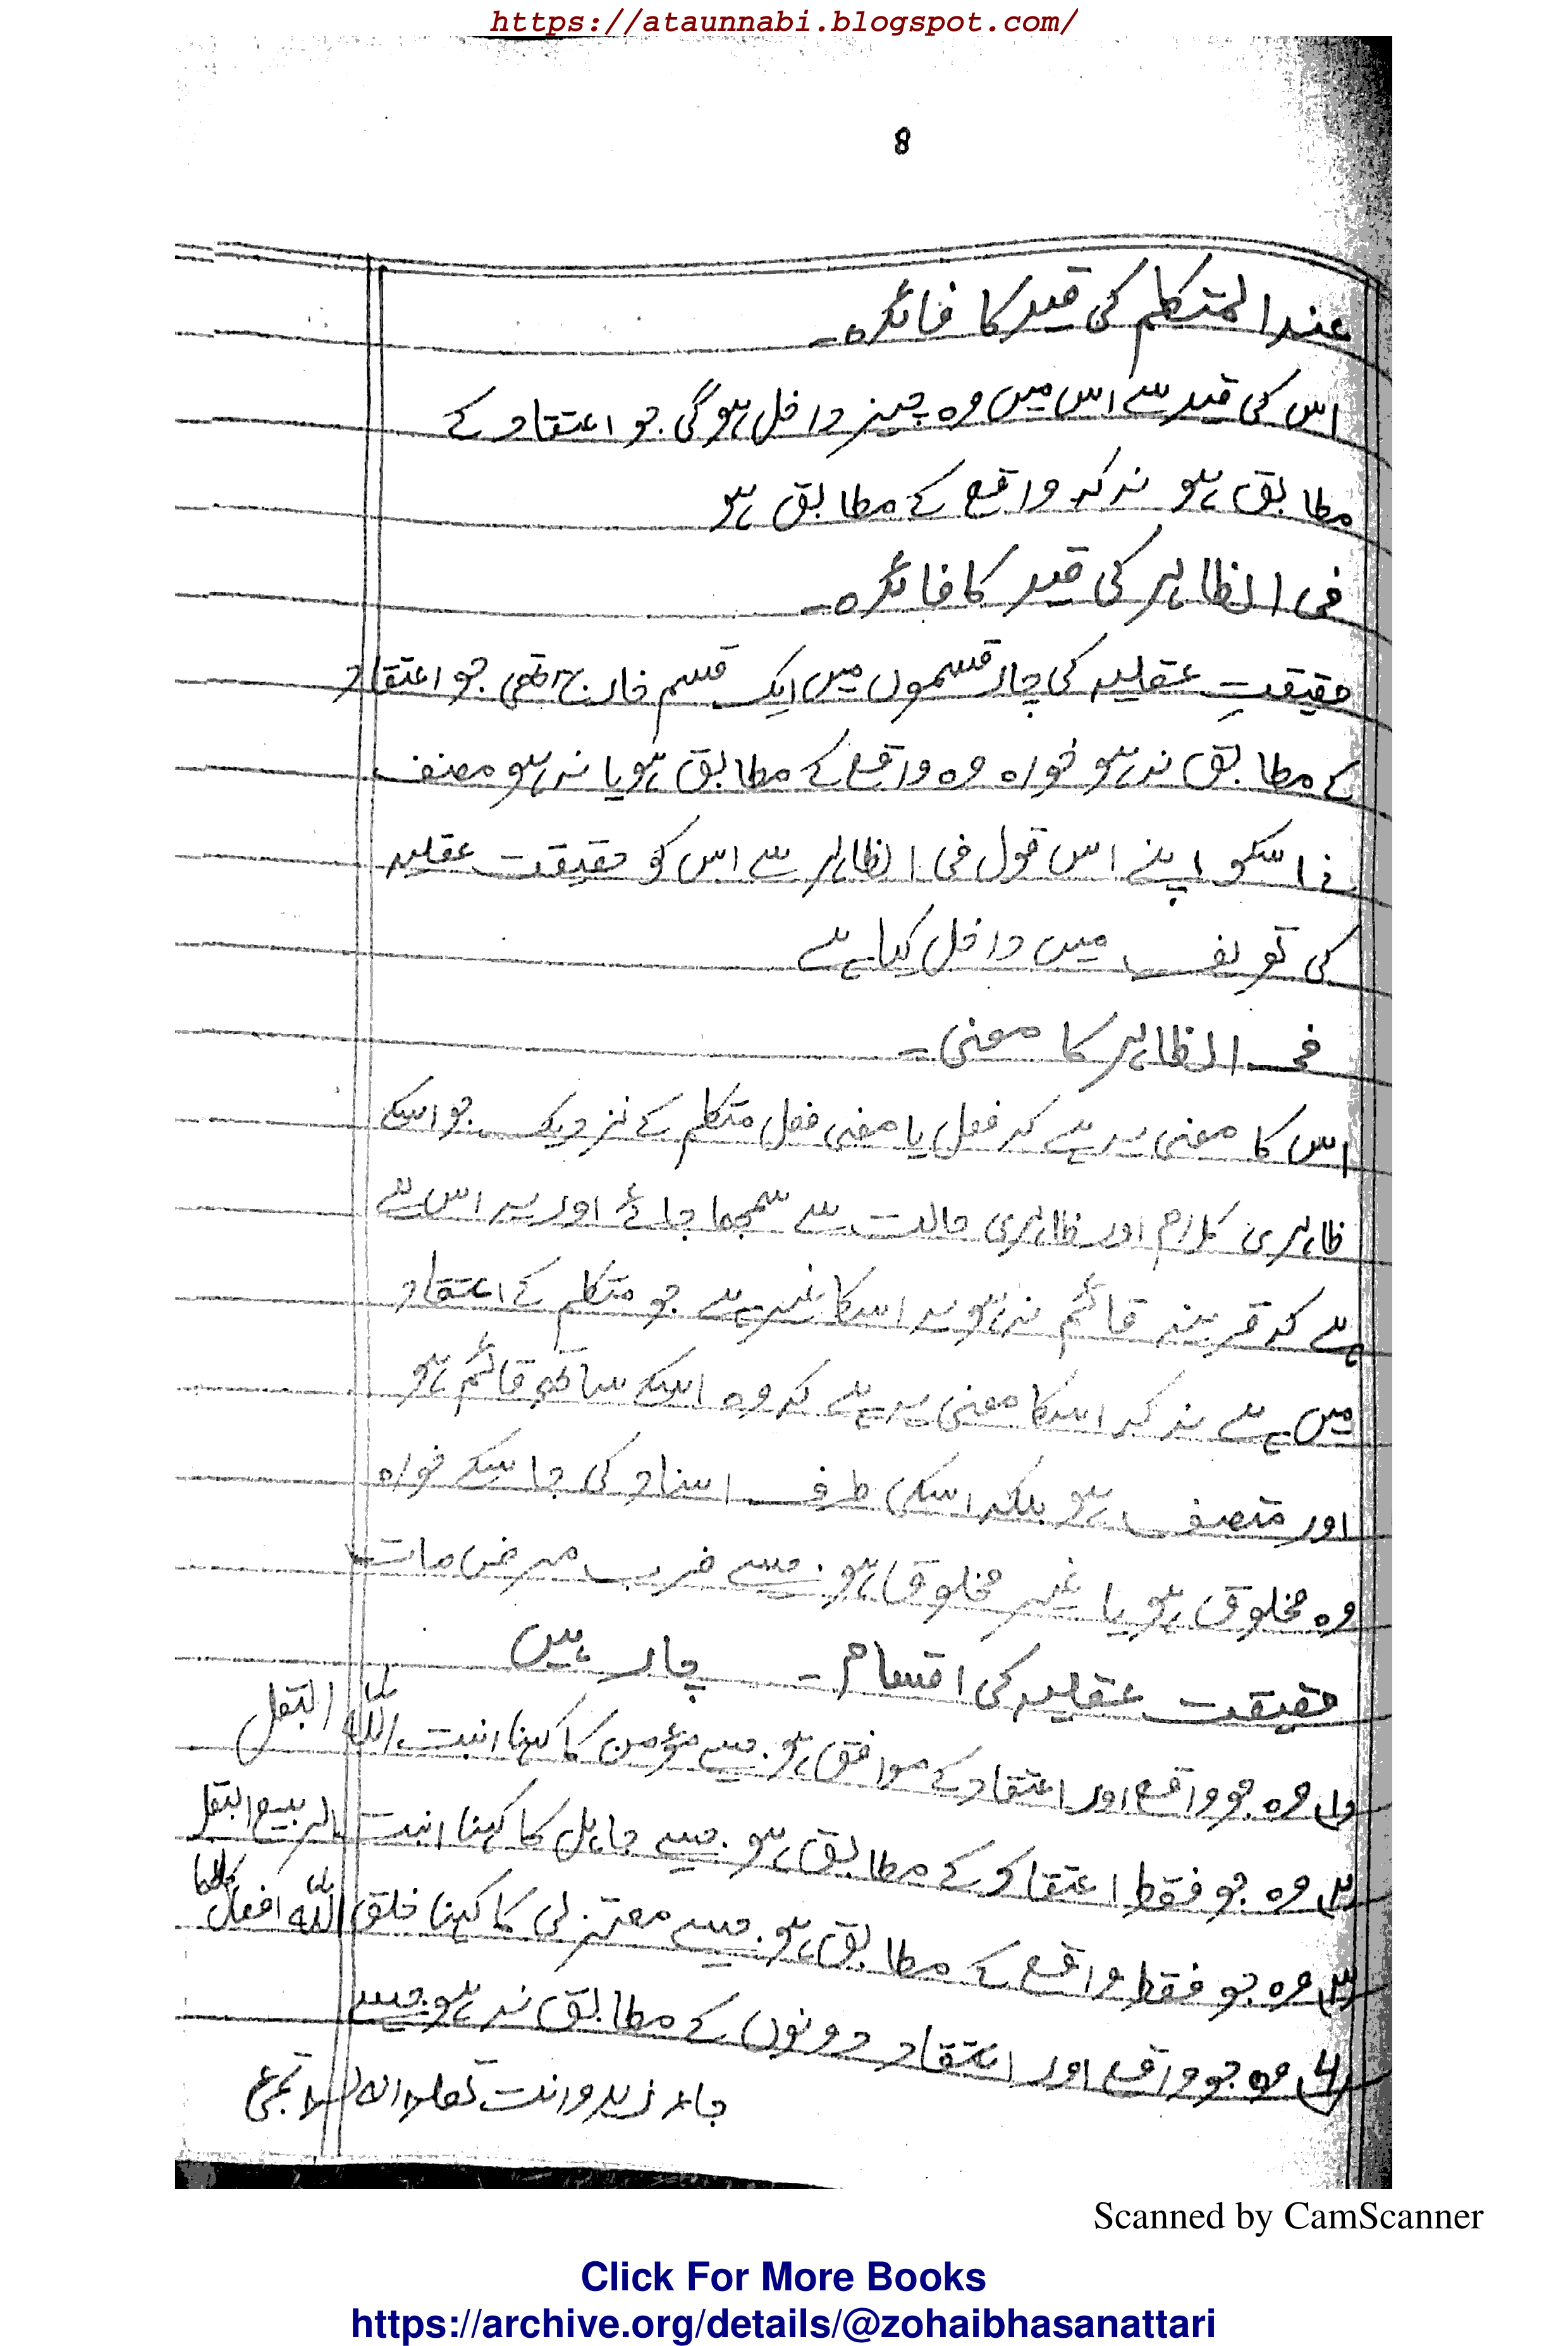 https://ataunnabi.blogspot.com/
8
عند المتکلم کی قید کا فائدہ۔
اس کی قید سے اس میں وہ چیز داخل ہوگی جو اعتقاد کے
مطابق ہو نہ کہ واقع کے مطابق ہو
فی الظاہر کی قید کا فائدہ۔
حقیقتِ عقلیہ کی چار قسموں میں ایک قسم خارج تھی جو اعتقاد
کے مطابق نہ ہو خواہ وہ واقع کے مطابق ہو یا نہ ہو مصنف
نے اسکو اپنے اس قول فی الظاہر سے اس کو حقیقت عقلیہ
کی تعریف میں داخل کیا ہے
فی الظاہر کا معنی۔
اس کا معنی یہ ہے کہ فعل یا معنی فعل متکلم کے نزدیک جو اسکے
ظاہری کلام اور ظاہری حالت سے سمجھا جائے اور یہ اس سے
ہے کہ قرینہ قائم نہ ہو یہ اسکا غیر ہے جو متکلم کے اعتقاد
میں ہے نہ کہ اسکا معنی یہ ہے کہ وہ اسکے ساتھ قائم ہو
اور متصف ہو بلکہ اسکی طرف اسناد کی جا سکے خواہ
وہ مخلوق ہو یا غیر مخلوق ہو۔ جیسے ضرب مرض مات
حقیقت عقلیہ کی اقسام۔ چار ہیں
(۱) وہ جو واقع اور اعتقاد کے موافق ہو۔ جیسے مؤمن کا کہنا انبت اللہ البقل
(۲) وہ جو فقط اعتقاد کے مطابق ہو۔ جیسے جاہل کا کہنا انبت الربیع البقل
(۳) وہ جو فقط واقع کے مطابق ہو۔ جیسے معتزلی کا کہنا خلق اللہ افعال کلھا
(۴) وہ جو واقع اور اعتقاد دونوں کے مطابق نہ ہو جیسے
جاء زید وانت تعلم انہ لم تجئی
Scanned by CamScanner
Click For More Books
https://archive.org/details/@zohaibhasanattari